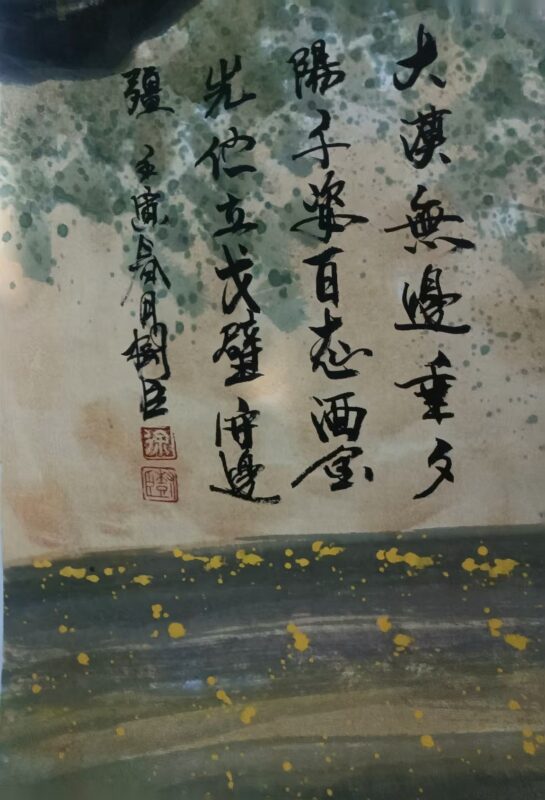 大漠無邊垂夕
陽千姿百态洒金
光他立戈壁守邊
疆 壬寅春月樹臣